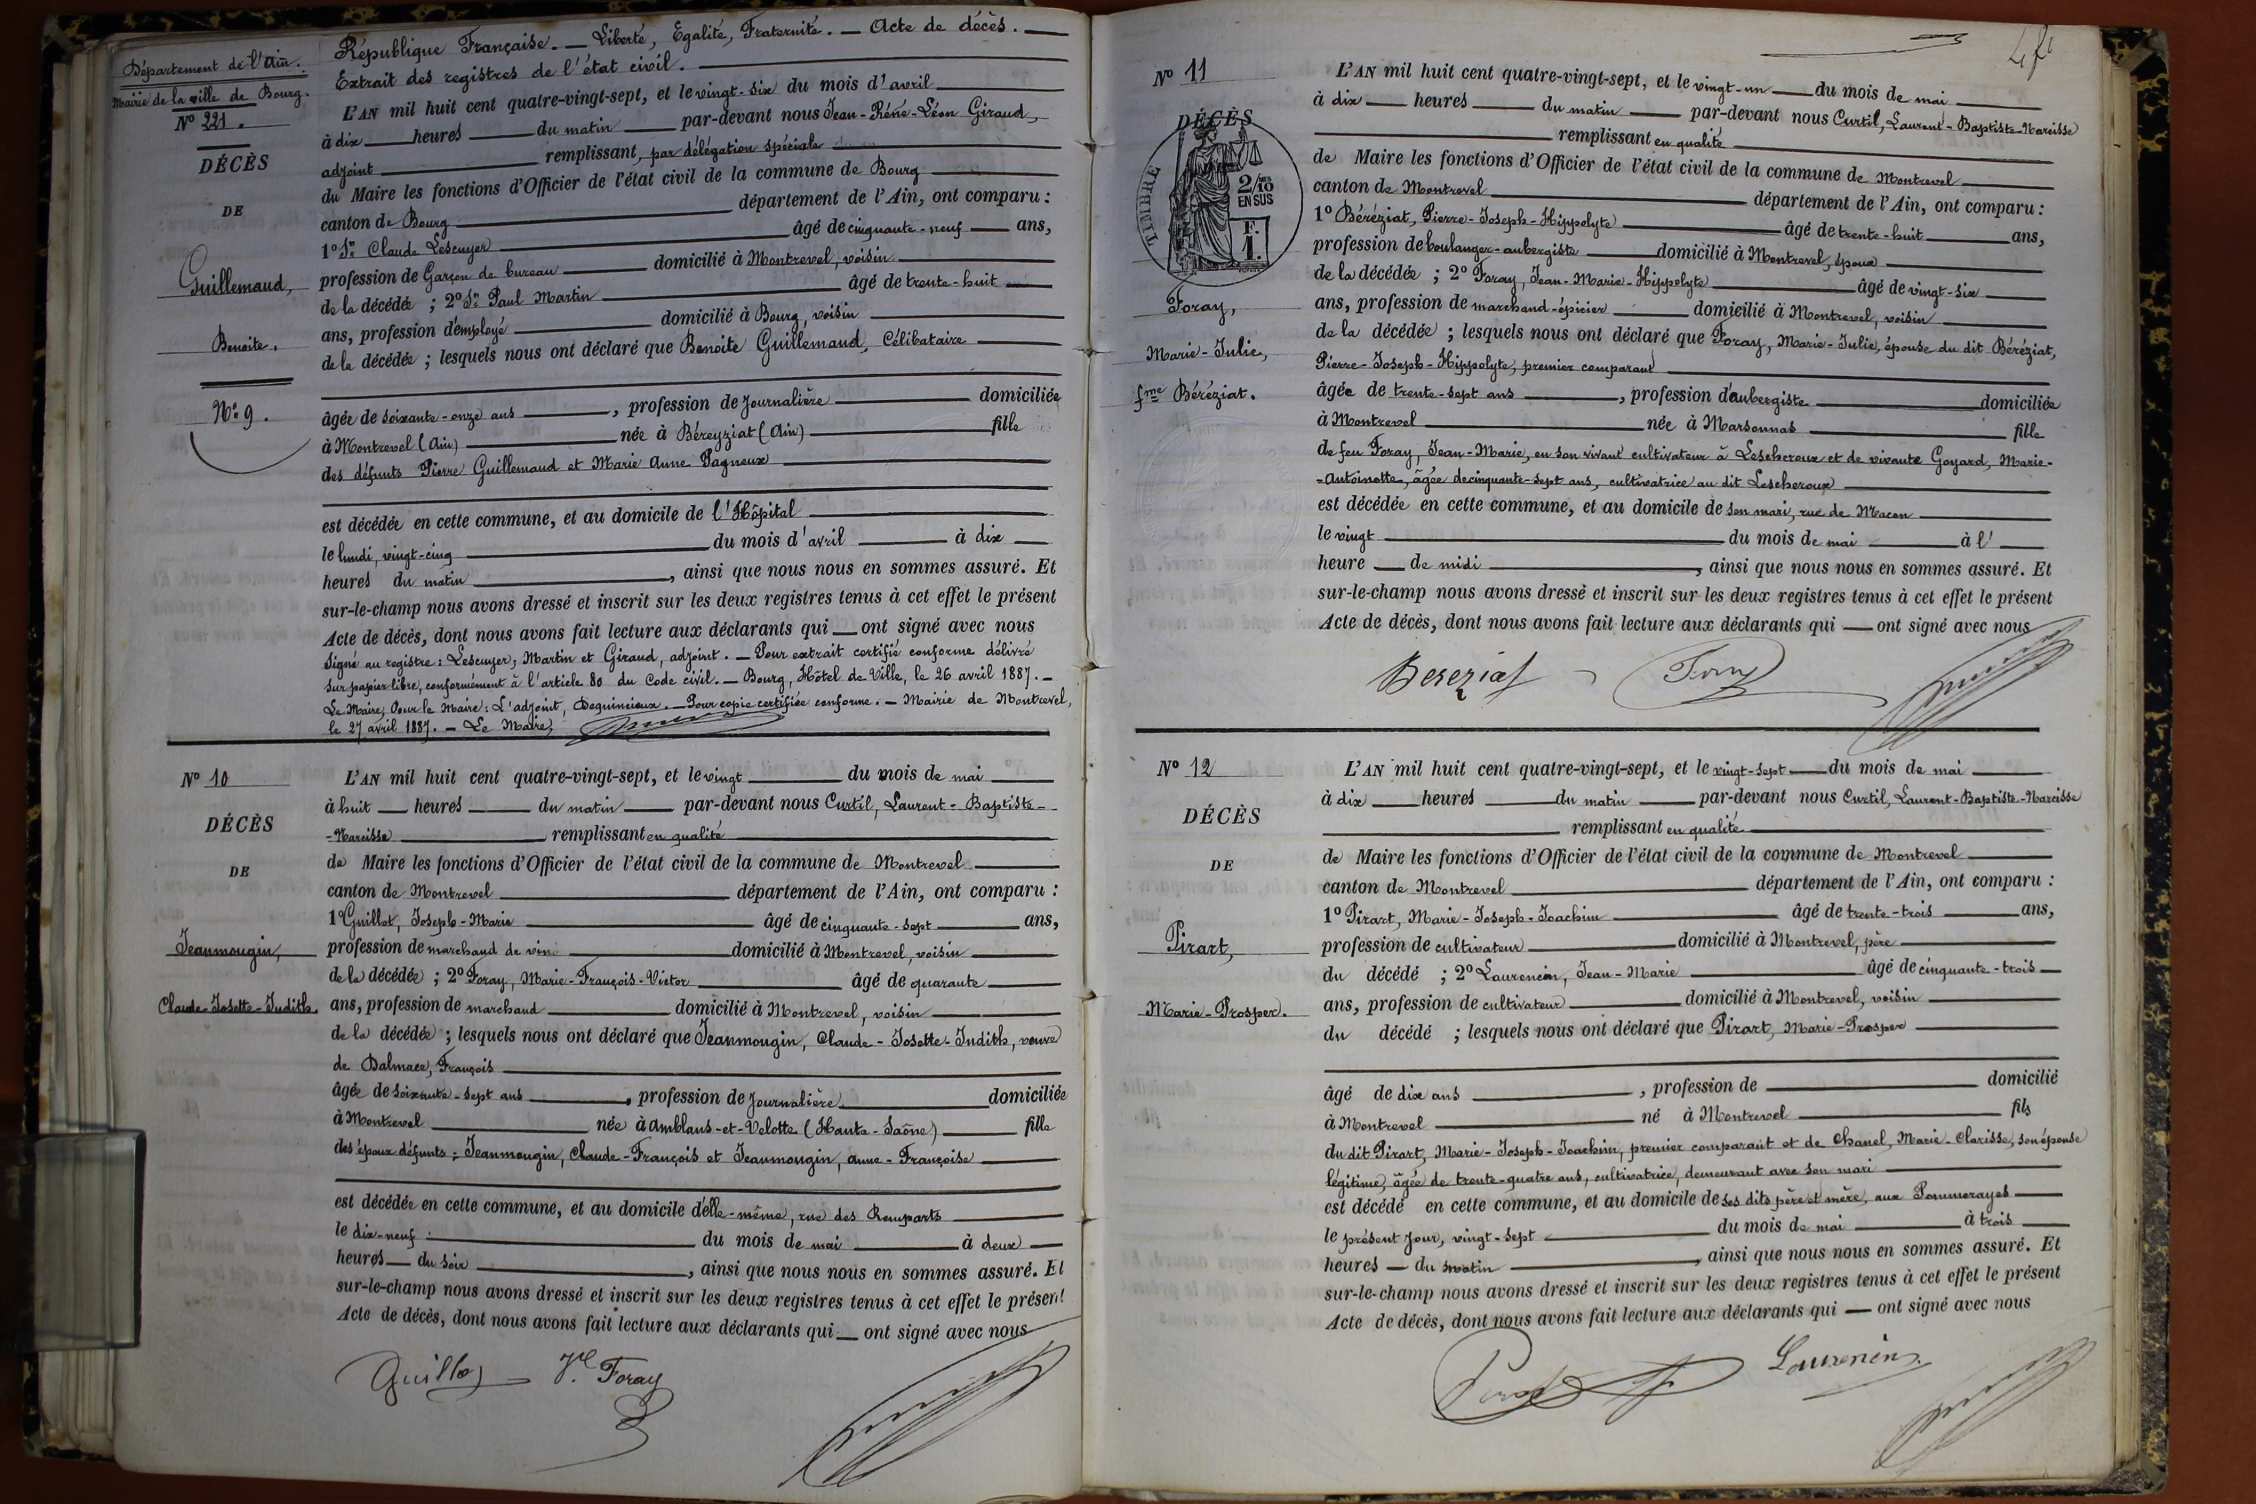 Département de l'Ain.
Mairie de la ville de Bourg.
Nº 221.
DÉCÈS
DE
Guillemaud,
Benoite.
Nº 9.
République Française. — Liberté, Egalité, Fraternité. — Acte de décès.
Extrait des registres de l'état civil.
L'AN mil huit cent quatre-vingt-sept, et le vingt-six du mois d'avril
à dix heures du matin par-devant nous Jean-Réné-Léon Giraud,
adjoint remplissant, par délégation spéciale
du Maire les fonctions d'Officier de l'état civil de la commune de Bourg
canton de Bourg département de l'Ain, ont comparu :
1º Sr. Claude Lescuyer âgé de cinquante-neuf ans,
profession de Garçon de bureau domicilié à Montrevel, voisin
de la décédée ; 2º Sr. Paul Martin âgé de trente-huit
ans, profession d'employé domicilié à Bourg, voisin
de la décédée ; lesquels nous ont déclaré que Benoite Guillemaud, Célibataire
âgée de soixante-onze ans , profession de Journalière domiciliée
à Montrevel (Ain) née à Béreyziat (Ain) fille
des défunts Pierre Guillemaud et Marie Anne Pagneux
est décédée en cette commune, et au domicile de l'Hôpital
le lundi, vingt-cinq du mois d'avril à dix
heures du matin , ainsi que nous nous en sommes assuré. Et
sur-le-champ nous avons dressé et inscrit sur les deux registres tenus à cet effet le présent
Acte de décès, dont nous avons fait lecture aux déclarants qui — ont signé avec nous
Signé au registre : Lescuyer, Martin et Giraud, adjoint. — Pour extrait certifié conforme délivré
sur papier libre, conformément à l'article 80 du Code civil. — Bourg, Hôtel de Ville, le 26 avril 1887. —
Le Maire, Pour le Maire : L'adjoint, Dequincieux. — Pour copie certifiée conforme. — Mairie de Montrevel,
le 27 avril 1887. — Le Maire,
Nº 10
DÉCÈS
DE
Jeanmougin,
Claude-Josette-Judith.
L'AN mil huit cent quatre-vingt-sept, et le vingt du mois de mai
à huit heures du matin par-devant nous Curtil, Laurent-Baptiste-
-Narcisse remplissant en qualité
de Maire les fonctions d'Officier de l'état civil de la commune de Montrevel
canton de Montrevel département de l'Ain, ont comparu :
1º Guillot, Joseph-Marie âgé de cinquante-sept ans,
profession de marchand de vin domicilié à Montrevel, voisin
de la décédée ; 2º Foray, Marie-François-Victor âgé de quarante
ans, profession de marchand domicilié à Montrevel, voisin
de la décédée ; lesquels nous ont déclaré que Jeanmougin, Claude-Josette-Judith, veuve
de Dalmace, François
âgée de soixante-sept ans , profession de Journalière domiciliée
à Montrevel née à Amblans-et-Velotte (Haute-Saône) fille
des époux défunts : Jeanmougin, Claude-François et Jeanmougin, Anne-Françoise
est décédée en cette commune, et au domicile d'elle-même, rue des Remparts
le dix-neuf du mois de mai à deux
heures du soir , ainsi que nous nous en sommes assuré. Et
sur-le-champ nous avons dressé et inscrit sur les deux registres tenus à cet effet le présent
Acte de décès, dont nous avons fait lecture aux déclarants qui — ont signé avec nous
Guillot Vr. Foray
Nº 11
DÉCÈS
TIMBRE
2/10
EN SUS
F.
1.
Foray,
Marie-Julie,
fme Béréziat.
L'AN mil huit cent quatre-vingt-sept, et le vingt-un du mois de mai
à dix heures du matin par-devant nous Curtil, Laurent-Baptiste-Narcisse
remplissant en qualité
de Maire les fonctions d'Officier de l'état civil de la commune de Montrevel
canton de Montrevel département de l'Ain, ont comparu :
1º Béréziat, Pierre-Joseph-Hippolyte âgé de trente-huit ans,
profession de boulanger-aubergiste domicilié à Montrevel, époux
de la décédée ; 2º Foray, Jean-Marie-Hippolyte âgé de vingt-six
ans, profession de marchand-épicier domicilié à Montrevel, voisin
de la décédée ; lesquels nous ont déclaré que Foray, Marie-Julie, épouse du dit Béréziat,
Pierre-Joseph-Hippolyte, premier comparant
âgée de trente-sept ans , profession d'aubergiste domiciliée
à Montrevel née à Marsonnas fille
de feu Foray, Jean-Marie, en son vivant cultivateur à Lescheroux et de vivante Goyard, Marie-
-Antoinette, âgée de cinquante-sept ans, cultivatrice au dit Lescheroux
est décédée en cette commune, et au domicile de son mari, rue de Macon
le vingt du mois de mai à l'
heure de midi , ainsi que nous nous en sommes assuré. Et
sur-le-champ nous avons dressé et inscrit sur les deux registres tenus à cet effet le présent
Acte de décès, dont nous avons fait lecture aux déclarants qui — ont signé avec nous
Bereziat Foray
Nº 12
DÉCÈS
DE
Pirart,
Marie-Prosper.
L'AN mil huit cent quatre-vingt-sept, et le vingt-sept du mois de mai
à dix heures du matin par-devant nous Curtil, Laurent-Baptiste-Narcisse
remplissant en qualité
de Maire les fonctions d'Officier de l'état civil de la commune de Montrevel
canton de Montrevel département de l'Ain, ont comparu :
1º Pirart, Marie-Joseph-Joachim âgé de trente-trois ans,
profession de cultivateur domicilié à Montrevel, père
du décédé ; 2º Laurencin, Jean-Marie âgé de cinquante-trois
ans, profession de cultivateur domicilié à Montrevel, voisin
du décédé ; lesquels nous ont déclaré que Pirart, Marie-Prosper
âgé de dix ans , profession de domicilié
à Montrevel né à Montrevel fils
du dit Pirart, Marie-Joseph-Joachim, premier comparant et de Chanel, Marie-Clarisse, son épouse
légitime, âgée de trente-quatre ans, cultivatrice, demeurant avec son mari
est décédé en cette commune, et au domicile de ses dits père et mère, aux Pommerayes
le présent jour, vingt-sept du mois de mai à trois
heures du matin , ainsi que nous nous en sommes assuré. Et
sur-le-champ nous avons dressé et inscrit sur les deux registres tenus à cet effet le présent
Acte de décès, dont nous avons fait lecture aux déclarants qui — ont signé avec nous
Laurencin